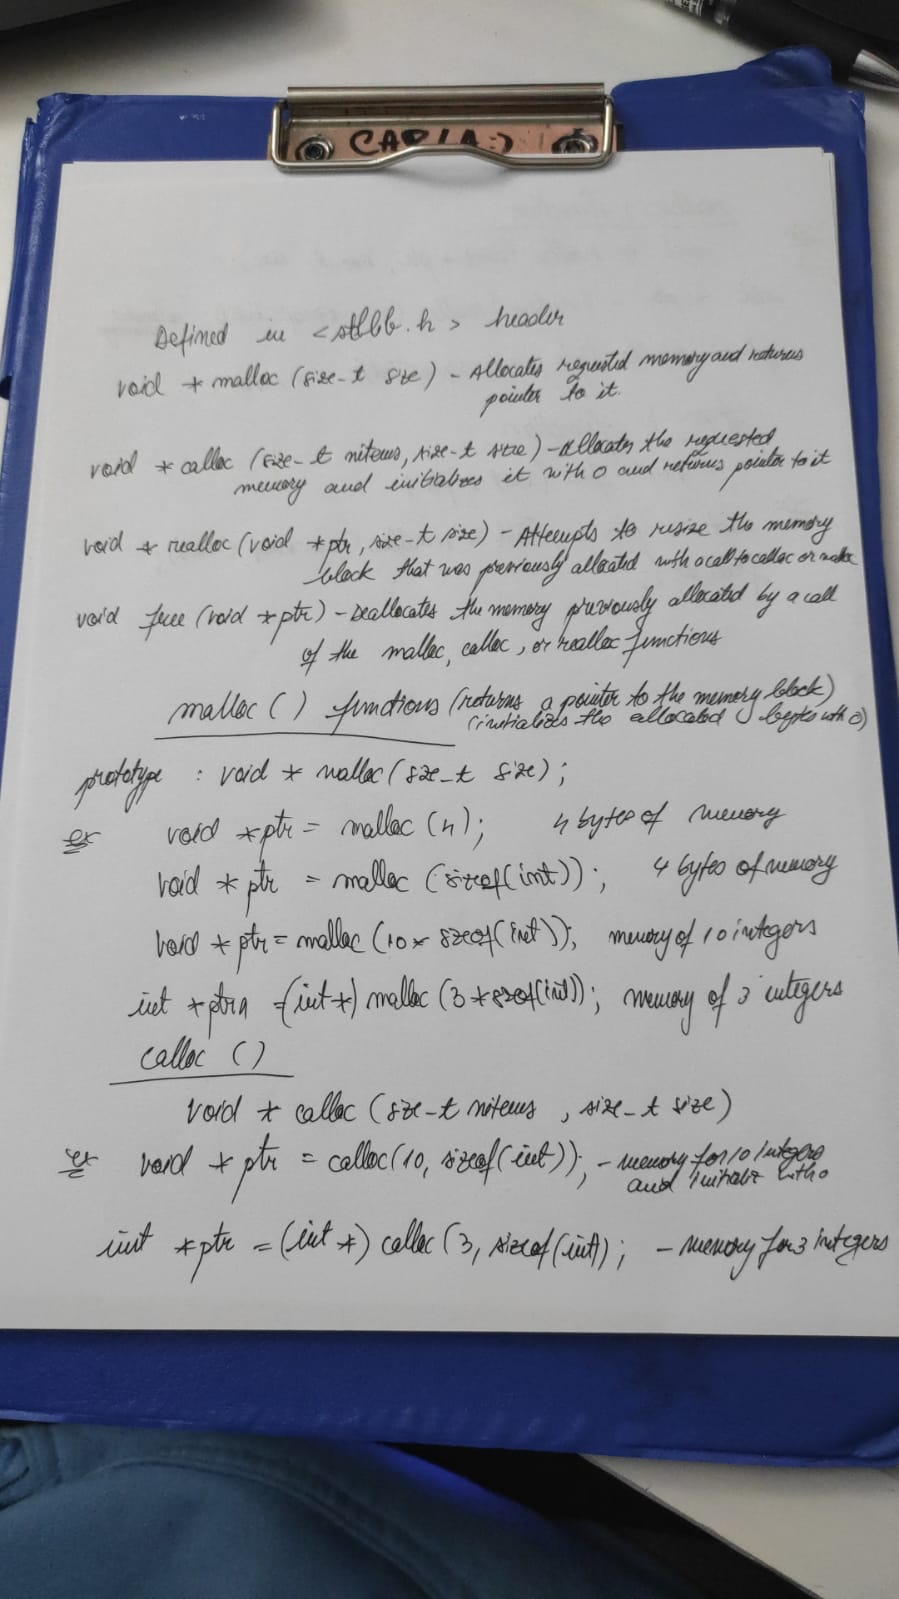 CARLA :)
Defined in <stdlib.h> header
void * malloc (size_t size) - Allocates requested memory and returns
pointer to it.
void * calloc (size_t nitems, size_t size) - allocates the requested
memory and initializes it with 0 and returns pointer to it
void * realloc (void *ptr, size_t size) - Attempts to resize the memory
block that was previously allocated with a call to calloc or malloc
void free (void *ptr) - Deallocates the memory previously allocated by a call
of the malloc, calloc, or realloc functions
malloc () functions (returns a pointer to the memory block)
(initializes the allocated bytes with 0)
prototype : void * malloc (size_t size);
ex void *ptr = malloc (4); 4 bytes of memory
void * ptr = malloc (sizeof(int)); 4 bytes of memory
void * ptr = malloc (10 * sizeof(int)); memory of 10 integers
int *ptr = (int *) malloc (3 * sizeof(int)); memory of 3 integers
calloc ()
void * calloc (size_t nitems, size_t size)
ex void * ptr = calloc(10, sizeof(int)); - memory for 10 integers
and with 0
int *ptr = (int *) calloc (3, sizeof(int)); - memory for 3 integers